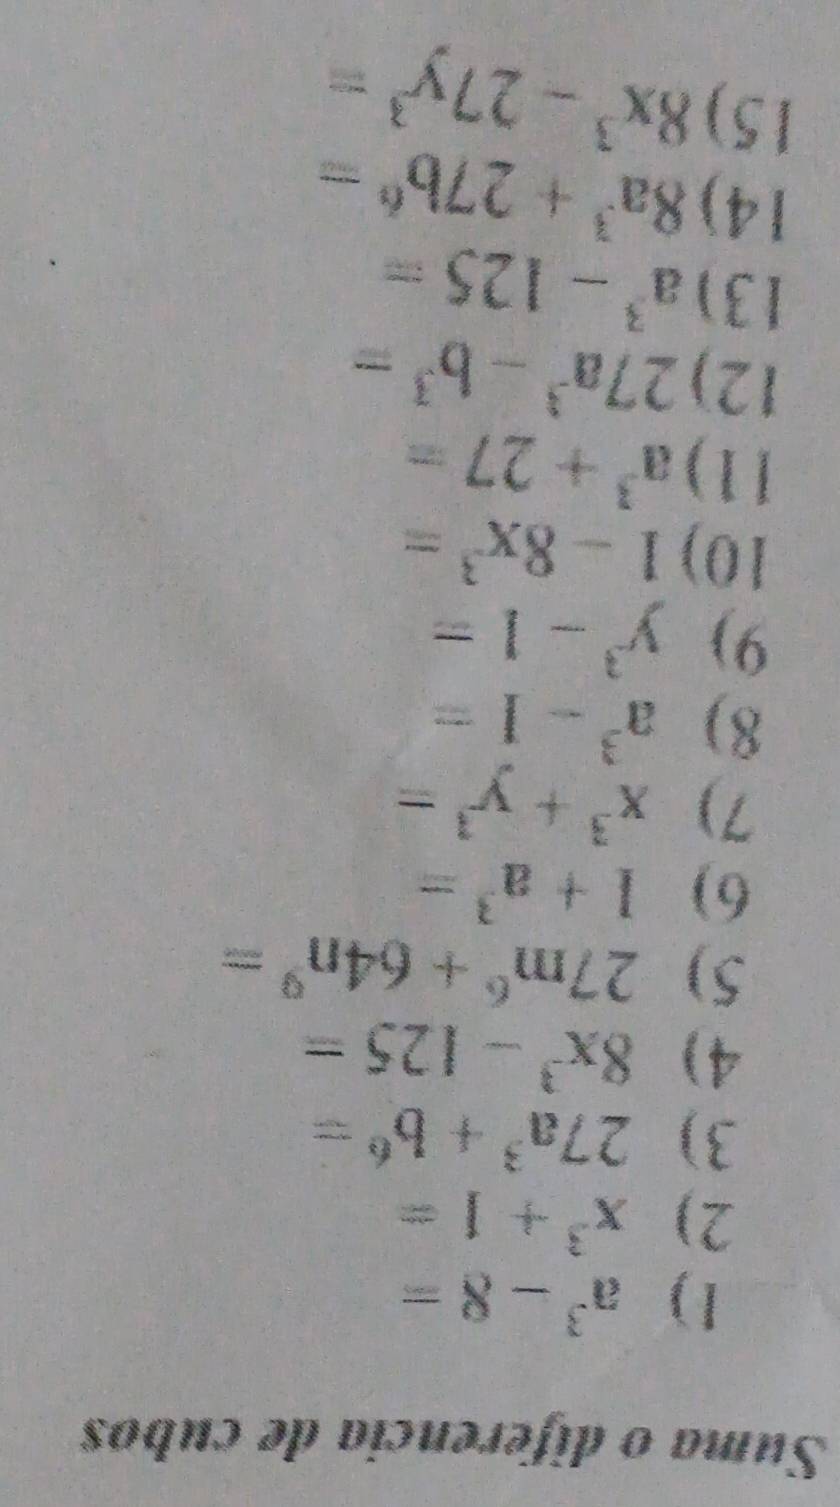 Suma o diferencia de cubos
1) a³ − 8 =
2) x³ + 1 =
3) 27a³ + b⁶ =
4) 8x³ − 125 =
5) 27m⁶ + 64n⁹ =
6) 1 + a³ =
7) x³ + y³ =
8) a³ − 1 =
9) y³ − 1 =
10) 1 − 8x³ =
11) a³ + 27 =
12) 27a³ − b³ =
13) a³ − 125 =
14) 8a³ + 27b⁶ =
15) 8x³ − 27y³ =